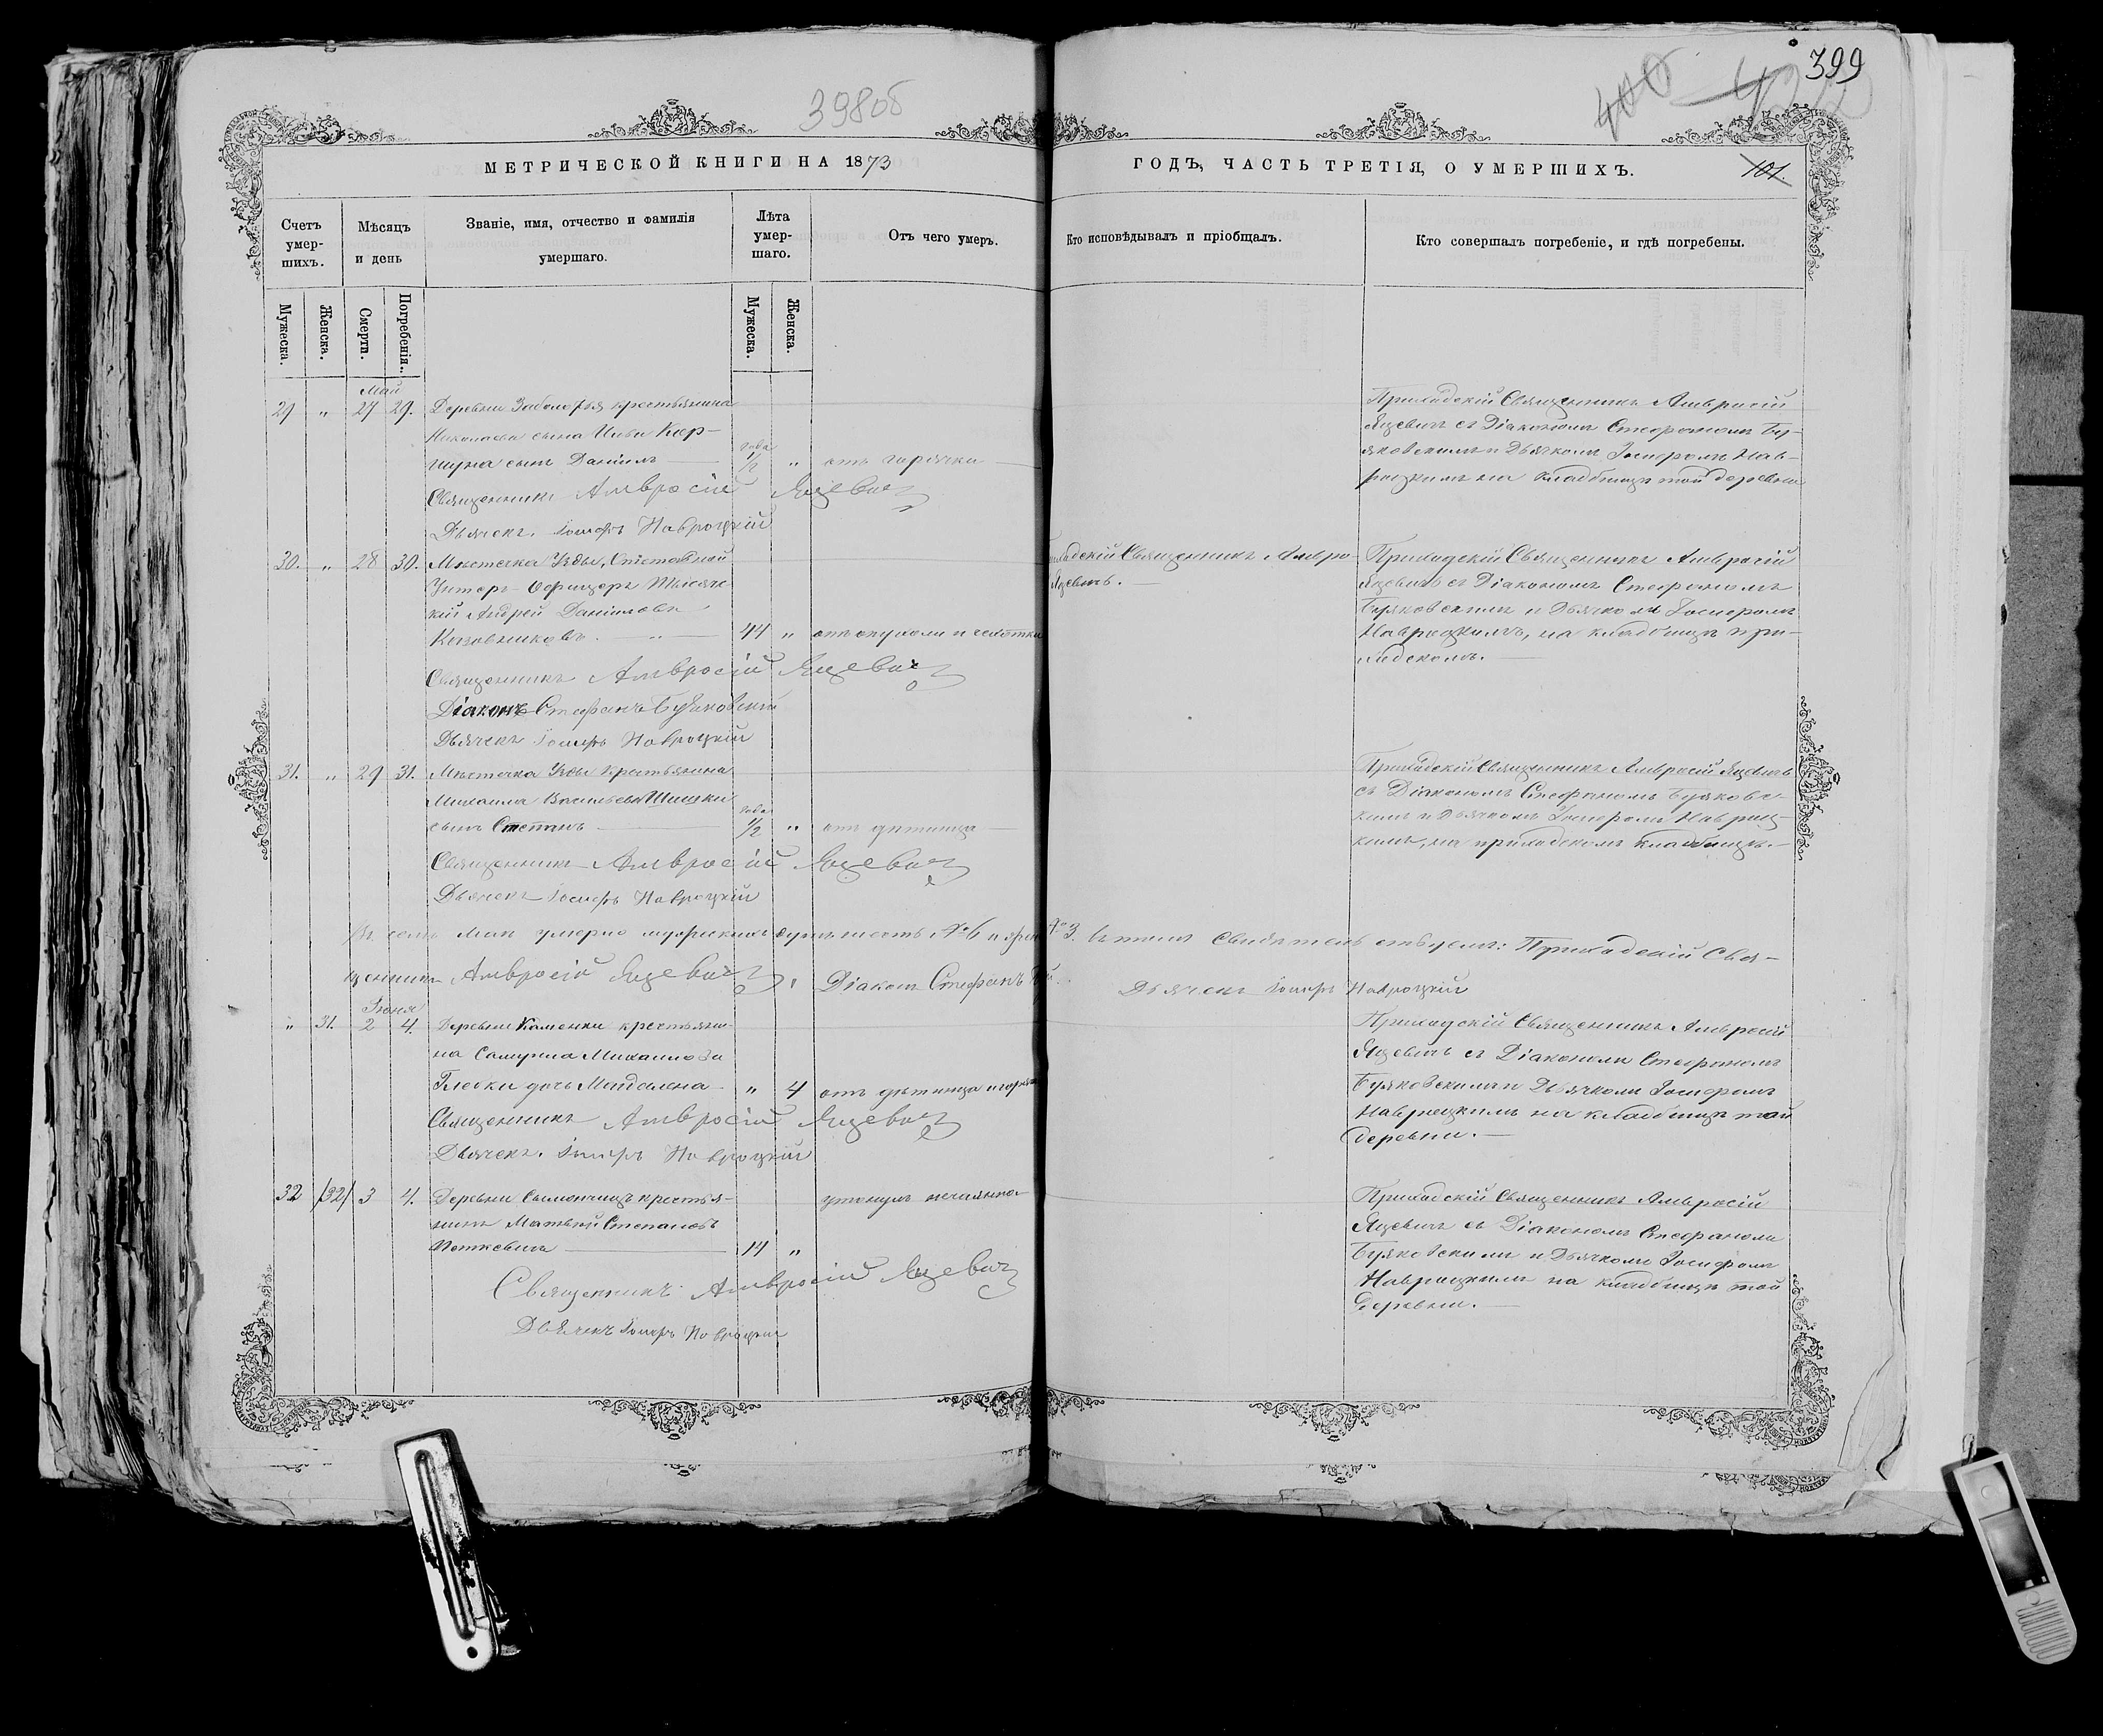 398об
400
399
МЕТРИЧЕСКОЙ КНИГИ НА 1873
ГОДЪ, ЧАСТЬ ТРЕТІЯ, О УМЕРШИХЪ.
101.
Счетъ умер-шихъ.
Мѣсяцъ и день
Званіе, имя, отчество и фамилія умершаго.
Лѣта умер-шаго.
Отъ чего умеръ.
Кто исповѣдывалъ и пріобщалъ.
Кто совершалъ погребеніе, и гдѣ погребены.
Мужеска.
Женска.
Смерти.
Погребенія.
Мужеска.
Женска.
Май
29 " 27 29. Деревни Заболотья крестьянина
Николаева сына
сынъ Даніилъ 1/2 " отъ горячки
Священникъ Амвросій Яцевичъ
Дьячекъ Іосифъ Навроцкій
Приходскій Священникъ Амвросій
Яцевичъ съ Діакономъ Стефаномъ Бу-
яковскимъ и Дьячкомъ Іосифомъ Нав-
роцкимъ на кладбищѣ той деревни
30. " 28 30. Мѣстечка Узды, Отставной
Унтеръ-Офицеръ
Андрей Даниловъ
44 " отъ опухоли и чахотки
Священникъ Амвросій Яцевичъ
Діаконъ Стефанъ Буяковскій
Дьячекъ Іосифъ Навроцкій
Священникъ Амвро-
Яцевичъ.
Приходскій Священникъ Амвросій
Яцевичъ съ Діакономъ Стефаномъ
Буяковскимъ и Дьячкомъ Іосифомъ
Навроцкимъ, на кладбищѣ при-
ходскомъ.
31. " 29 31. Мѣстечка Узды крестьянина
Михаила Васильева Шишки
сынъ Степанъ 1/2 " отъ дѣтинца
Священникъ Амвросій Яцевичъ
Дьячекъ Іосифъ Навроцкій
Приходскій Священникъ Амвросій Яцевичъ
съ Діакономъ Стефаномъ Буяковс-
кимъ и Дьячкомъ Іосифомъ Навроц-
кимъ, на приходскомъ кладбищѣ.
Въ семъ маѣ умерло мужескихъ душъ шесть № 6 и № 3. въ томъ свидѣтельствуемъ: Приходскій Свя-
щенникъ Амвросій Яцевичъ, Діаконъ Стефанъ
Дьячекъ Іосифъ Навроцкій
Іюня
" 31. 2 4. Деревни Каменки крестьяни-
на Михайлова
Глебки дочь Магдалена " 4 отъ дѣтинца
Священникъ Амвросій Яцевичъ
Дьячекъ Іосифъ Навроцкій
Приходскій Священникъ Амвросій
Яцевичъ съ Діакономъ Стефаномъ
Буяковскимъ и Дьячкомъ Іосифомъ
Навроцкимъ на кладбищѣ той
деревни.
32 /32/ 3 4. Деревни крестья-
нинъ Матвѣй Степановъ
Петкевичъ 14 "
утонулъ нечаянно
Священникъ Амвросій Яцевичъ
Дьячекъ Іосифъ Навроцкій
Приходскій Священникъ Амвросій
Яцевичъ съ Діакономъ Стефаномъ
Буяковскимъ и Дьячкомъ Іосифомъ
Навроцкимъ на кладбищѣ той
деревни.